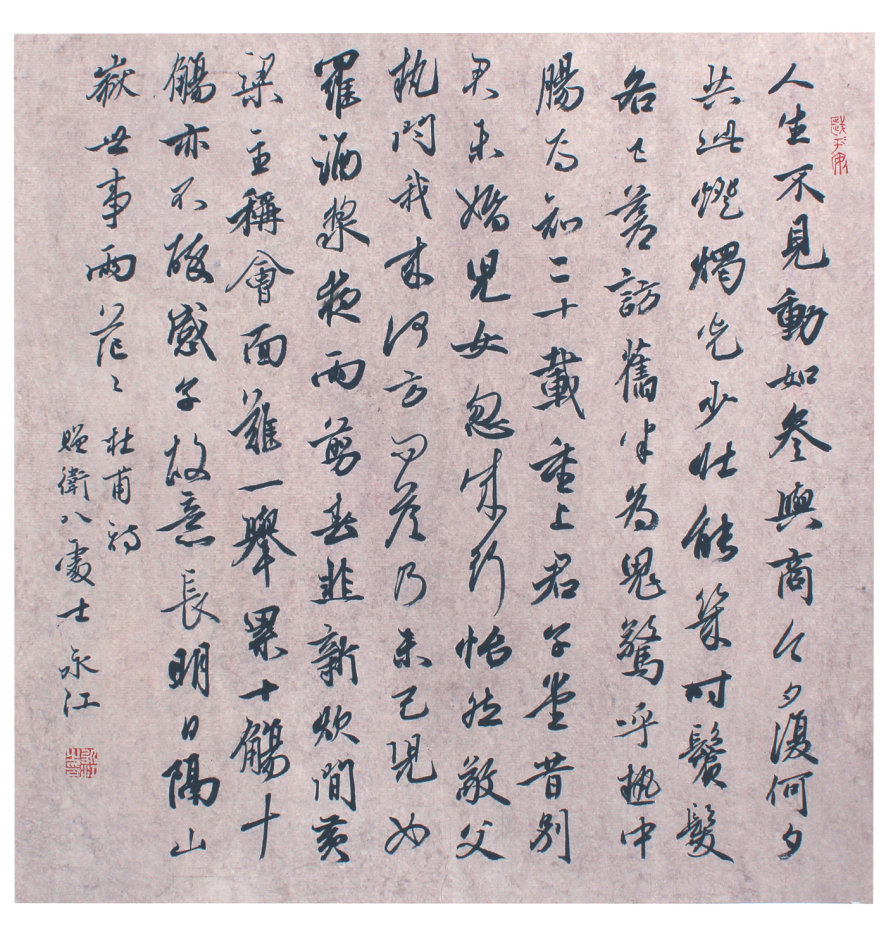 人生不見動如參與商今夕復何夕
共此燈燭光少壯能幾時鬢髮
各已蒼訪舊半為鬼驚呼熱中
腸焉知二十載重上君子堂昔別
君未婚兒女忽成行怡然敬父
執問我來何方問答乃未已兒女
羅酒漿夜雨剪春韭新炊間黃
梁主稱會面難一舉累十觴十
觴亦不醉感子故意長明日隔山
嶽世事兩茫〻
杜甫詩
贈衛八處士永江